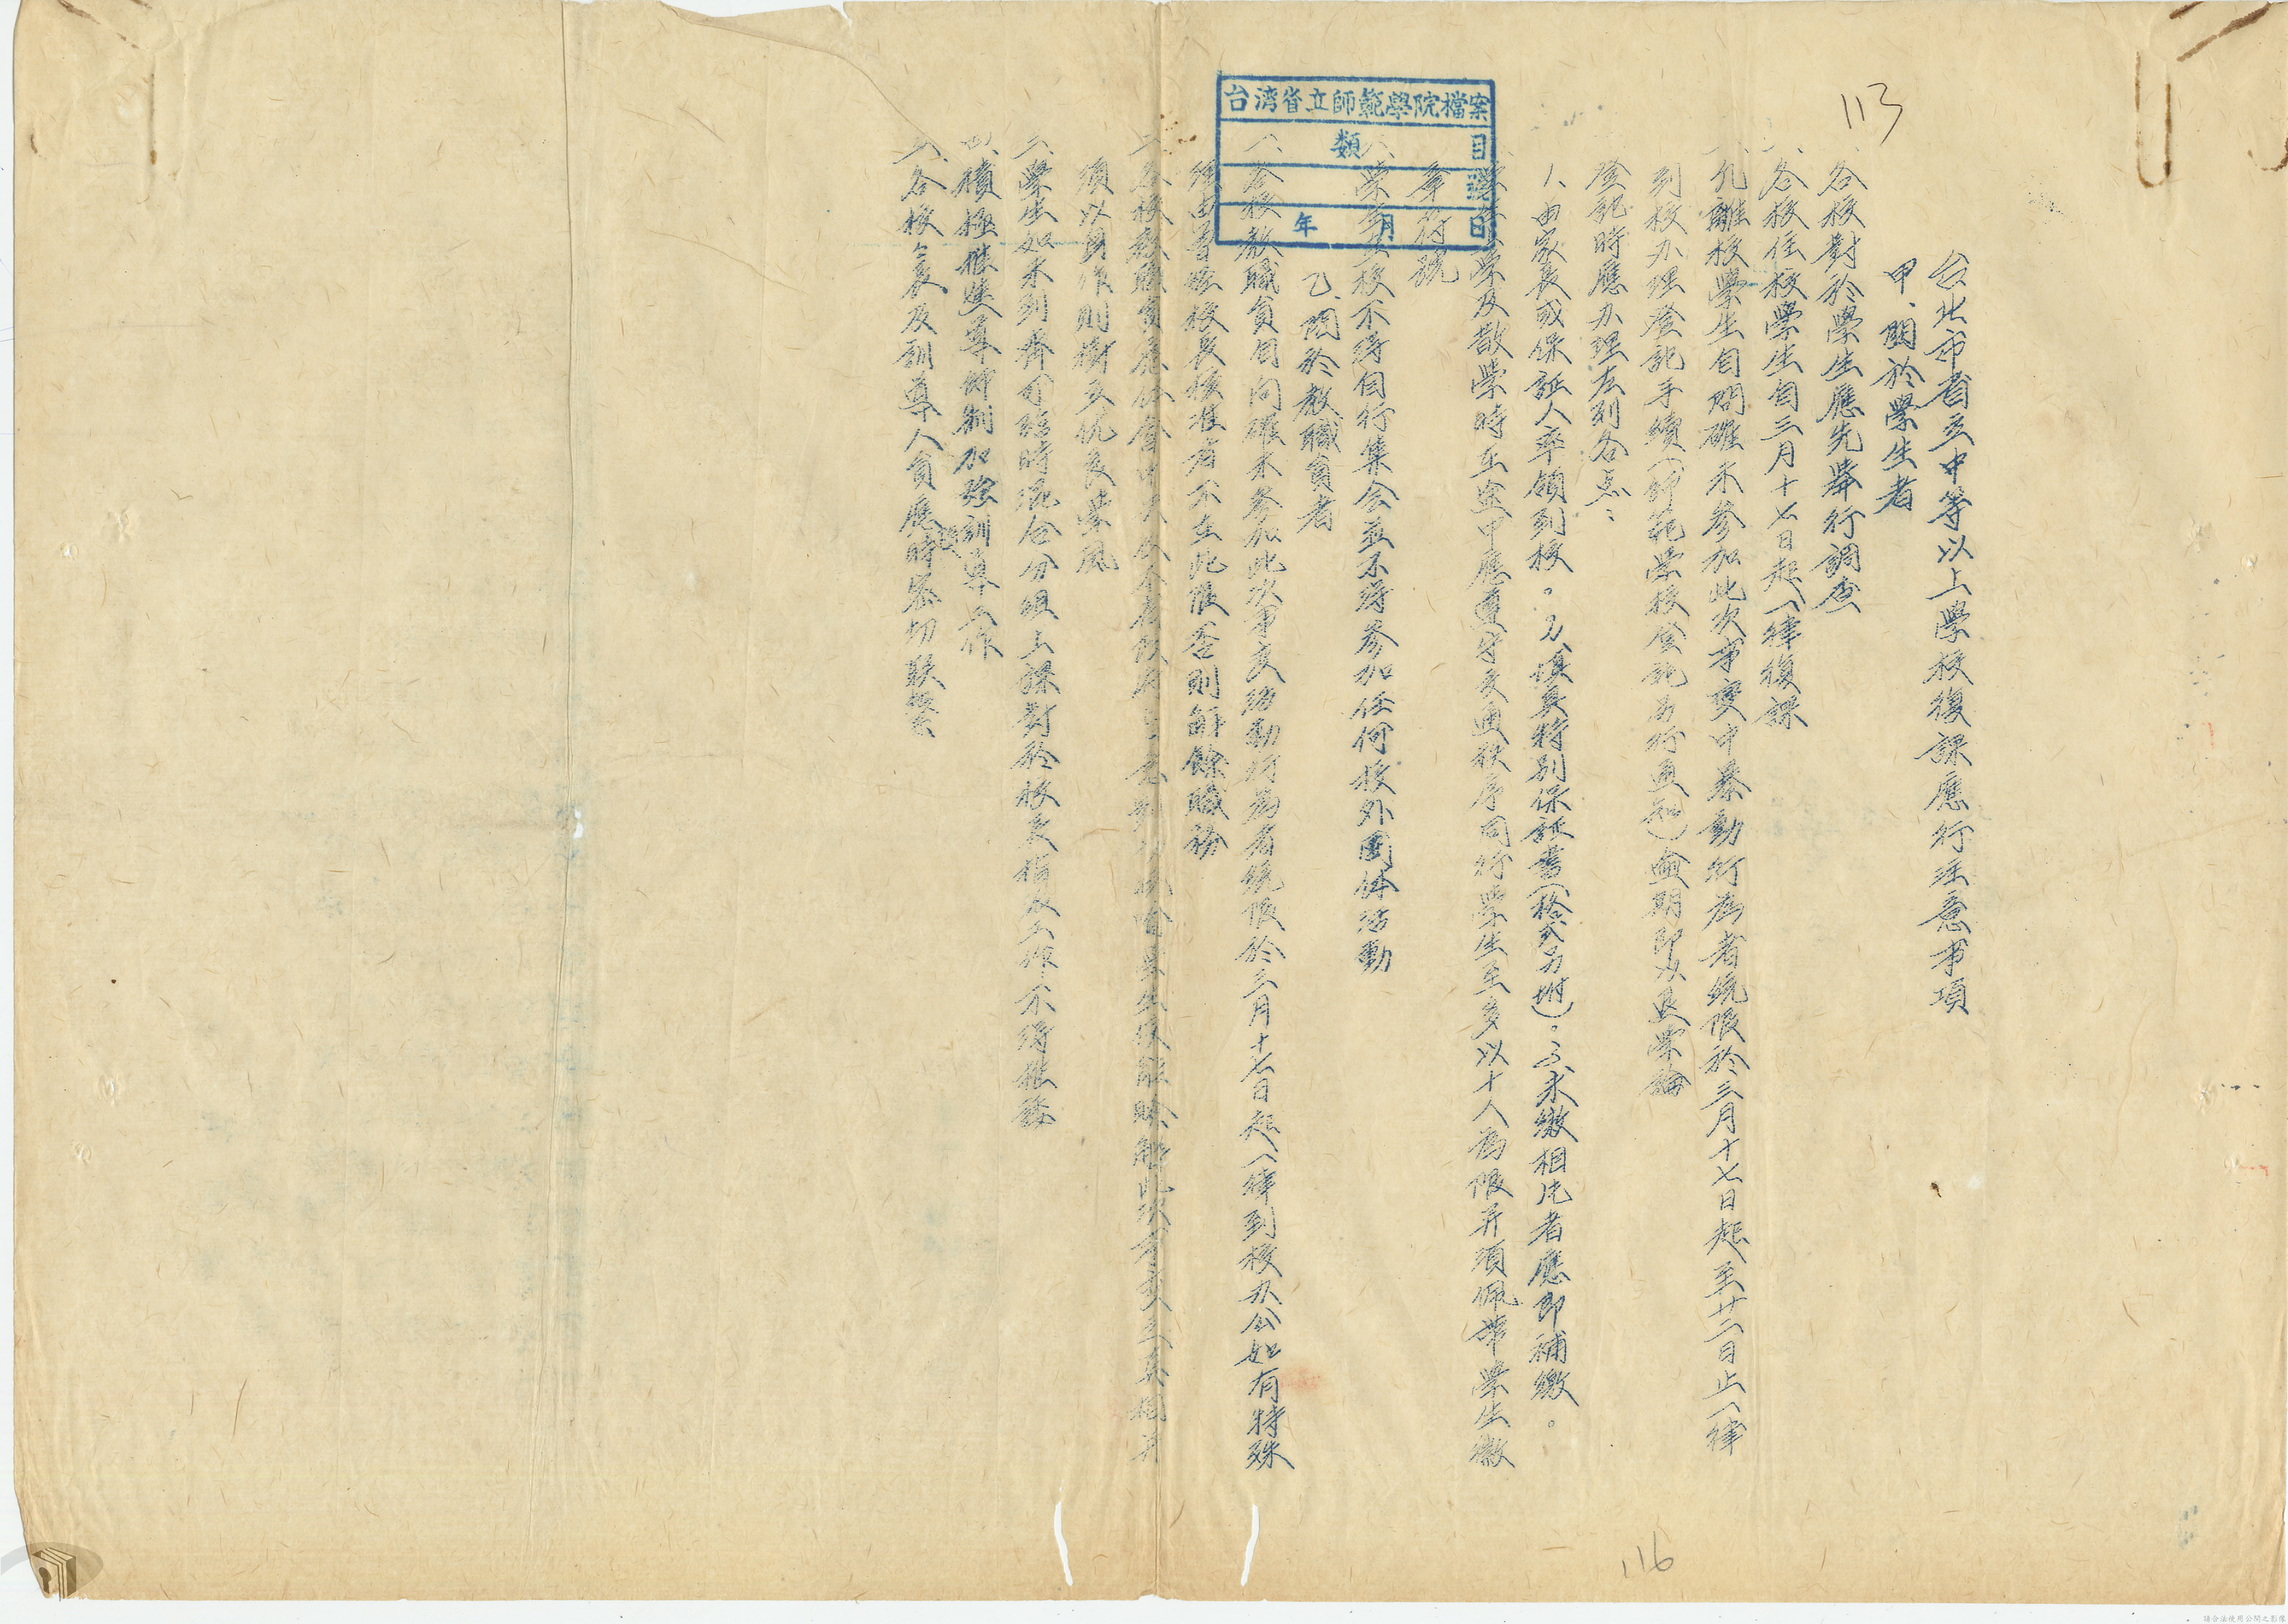 113
台北市省立中等以上學校復課應行注意事項
甲、關於學生者
各校對於學生應先舉行調查
各校住校學生自三月十七日起一律復課
凡離校學生自問確未參加此次事變中暴動行為者統限於三月十七日起至廿二日止一律
到校办理登記手續(師範學校登記另行通知)逾期即以退學論
登記時應办理左列各点:
1、由家長或保証人率領到校。2、填具特別保証書(格式另附)。3、未繳相片者應即補繳。
學及散學時在途中應遵守交通秩序同行學生至多以十人為限并須佩帶學生徽
章符號
校不得自行集会並不得參加任何校外團体活動
乙、關於教職員者
一、各校教職員自問確未參加此次事变暴動行為者統限於三月十七日起一律到校办公如有特殊
經校長核准者不在此限否則解除職務
二、各校教職員應
須以身作則樹立優良學風
三、學生如未到齊可臨時混合分組上課對於校長指定工作不得推諉
四、積極推進導師制加強訓導工作
各校長及訓導人員應時密切联繫
台湾省立師範學院檔案
類 目
年 月 日
116
請合法使用公開之影像